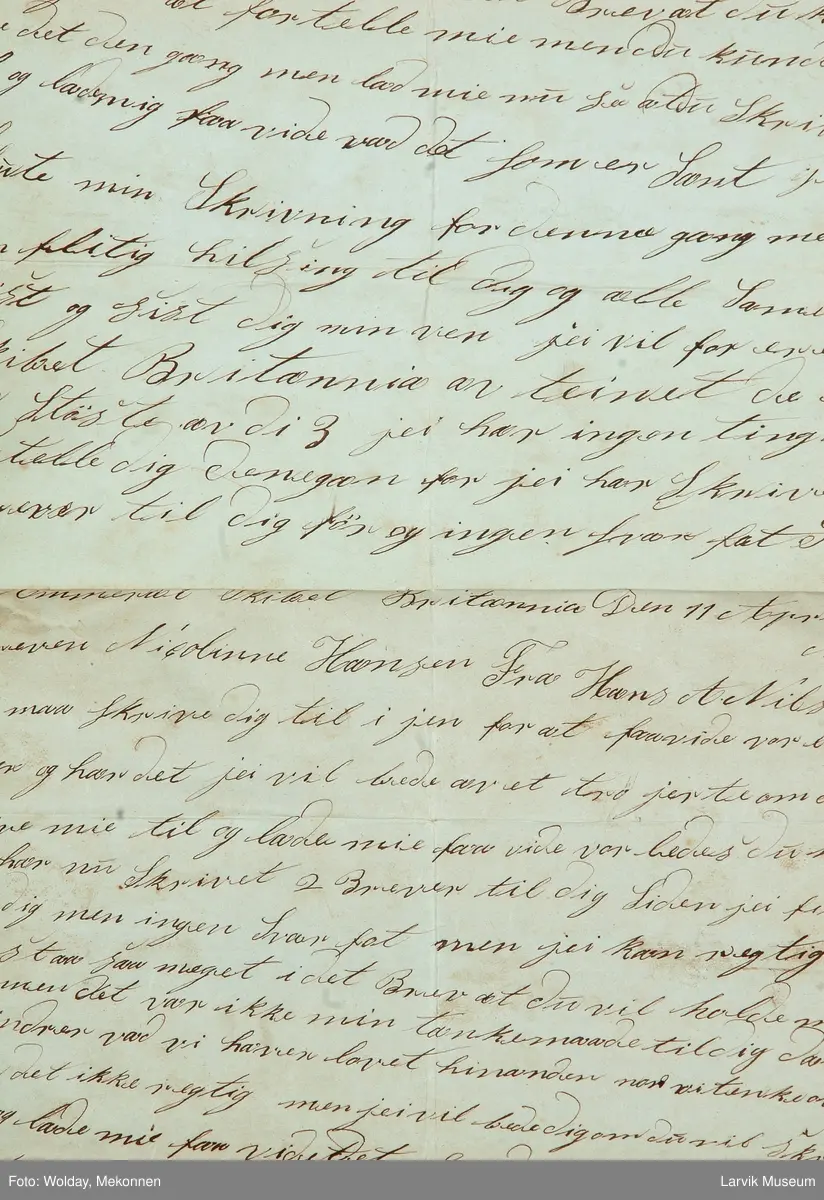 at fortelle mie men du kunde
det den gang men lad mie nu så at du Skri
og lad mig faa vide vad det som er Sant
ute min Skrivning for denne gang me
flitig hilsing til dig og alle Same
st og sist dig min ven jei vil for er
ibet Britannia av teinet de
Stöste av di 3 jei har ingen ting
telle dig denegan for jei har Skrive
rever til dig för og ingen svar fat
Skibet Britannia Den 11 Apr
Nicolinne Hansen Fra Hans A Nils
maa Skrive dig til i jen for at faa vide vor
og har det jei vil bede av et tro jerte om
ve mie til og lade mie faa vide vor ledes du
har nu Skrivet 2 Brever til dig Siden jei f
dig men ingen svar fat men jei kan regtig
staa saa meget i det Brev at du vil holde
men det var ikke min tankemaade til dig da
indrer vad vi haver lovet hinanden naar vi tenke
det ikke regtig men jei vil bede dig om du vil Skr
og lade mie faa vide det
Foto: Wolday, Mekonnen
Larvik Museum